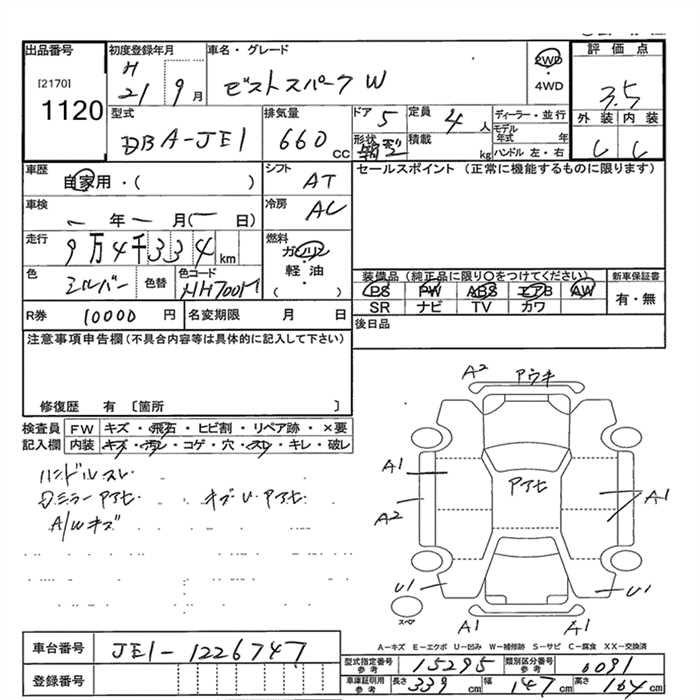 出品番号 初度登録年月 車名・グレード 2WD ・4WD 評価点
[2170] H 21 9月 ゼストスパーク W 3.5
1120 型式 排気量 ドア 5 定員 4人 ディーラー・並行 外装 内装
DBA-JE1 660 CC 形状 積載 kg モデル年式 年 C C
ハンドル 左・右
車歴 自家用・( ) シフト AT セールスポイント (正常に機能するものに限ります)
車検 年 月( 日) 冷房 AC
走行 9万4千334km 燃料 ガソリン
軽・油
( )
色 シルバー 色替 色コード NH700M 装備品 (純正品に限り○をつけてください) 新車保証書
PS PW ABS エアB AW 有・無
SR ナビ TV カワ
R券 10000 円 名変期限 月 日 後日品
注意事項申告欄 (不具合内容等は具体的に記入して下さい)
修復歴 有 〔箇所 〕
検査員 FW キズ・飛石・ヒビ割・リペア跡・×要
記入欄 内装 キズ・汚レ・コゲ・穴・スレ・キレ・破レ
ハンドルスレ
ミラーアセ キズU アセ
A/Wキズ
A2 アウキ
A1 アアセ A1
A2
U1 U1
スペア A1 A1
A-キズ E-エクボ U-凹み W-補修跡 S-サビ C-腐食 XX-交換済
車台番号 JE1-1226747
型式指定番号 参考 15295 類別区分番号 参考 0091
登録番号 車庫証明用 参考 長さ 339cm 幅 147cm 高さ 164cm